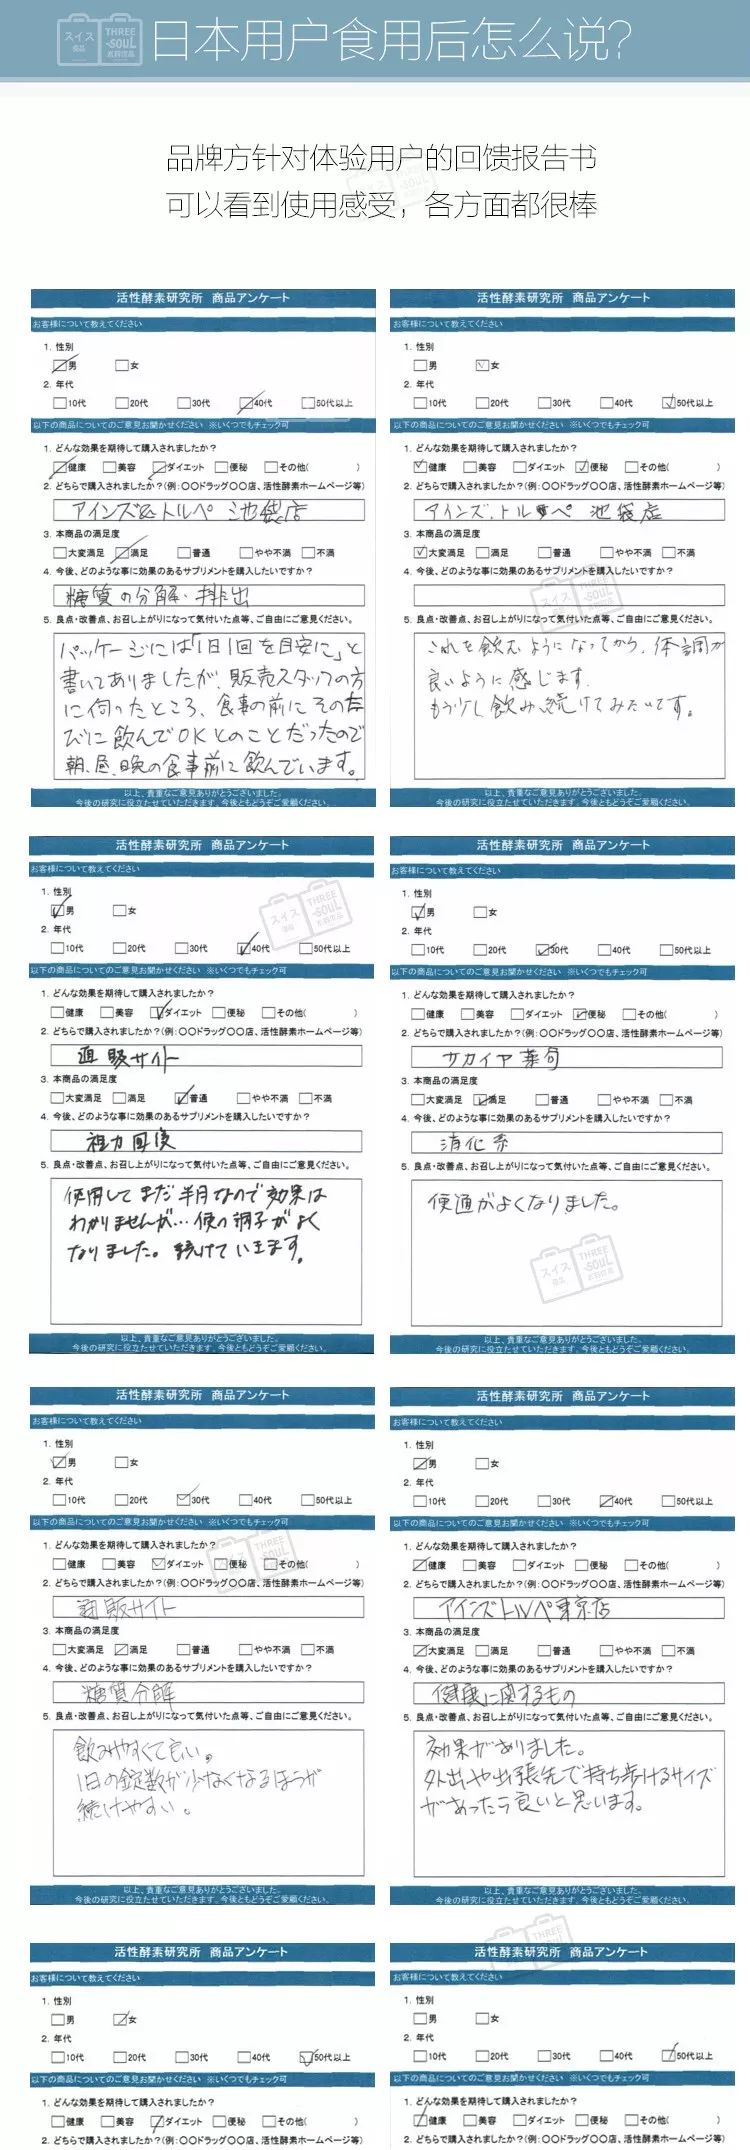 スイス
食品
THREE
-SOUL
日本用户食用后怎么说?
品牌方针对体验用户的回馈报告书
可以看到使用感受，各方面都很棒
活性酵素研究所 商品アンケート
お客様について教えてください
1. 性別
男 女
2. 年代
10代 20代 30代 40代 50代以上
以下の商品についてのご意見お聞かせください ※いくつでもチェック可
1. どんな効果を期待して購入されましたか?
健康 美容 ダイエット 便秘 その他( )
2. どちらで購入されましたか?(例:〇〇ドラッグ〇〇店、活性酵素ホームページ等)
アインズ&トルペ 池袋店
3. 本商品の満足度
大変満足 満足 普通 やや不満 不満
4. 今後、どのような事に効果のあるサプリメントを購入したいですか?
糖質の分解・排出
5. 良点・改善点、お召し上がりになって気付いた点等、ご自由にご意見ください。
パッケージには「1日1回を目安に」と
書いてありましたが、販売スタッフの方
に伺ったところ、食事の前にそのた
びに飲んでOKとのことだったので
朝、昼、晩の食事前に飲んでいます。
以上、貴重なご意見ありがとうございました。
今後の研究に役立たせていただきます。今後ともどうぞご愛顧ください。
活性酵素研究所 商品アンケート
お客様について教えてください
1. 性別
男 女
2. 年代
10代 20代 30代 40代 50代以上
以下の商品についてのご意見お聞かせください ※いくつでもチェック可
1. どんな効果を期待して購入されましたか?
健康 美容 ダイエット 便秘 その他( )
2. どちらで購入されましたか?(例:〇〇ドラッグ〇〇店、活性酵素ホームページ等)
アインズ.トルペ 池袋店
3. 本商品の満足度
大変満足 満足 普通 やや不満 不満
4. 今後、どのような事に効果のあるサプリメントを購入したいですか?
5. 良点・改善点、お召し上がりになって気付いた点等、ご自由にご意見ください。
これを飲むようになってから、体調が
良いように感じます.
もう少し飲み続けてみたいです。
以上、貴重なご意見ありがとうございました。
今後の研究に役立たせていただきます。今後ともどうぞご愛顧ください。
活性酵素研究所 商品アンケート
お客様について教えてください
1. 性別
男 女
2. 年代
10代 20代 30代 40代 50代以上
以下の商品についてのご意見お聞かせください ※いくつでもチェック可
1. どんな効果を期待して購入されましたか?
健康 美容 ダイエット 便秘 その他( )
2. どちらで購入されましたか?(例:〇〇ドラッグ〇〇店、活性酵素ホームページ等)
直販サイト
3. 本商品の満足度
大変満足 満足 普通 やや不満 不満
4. 今後、どのような事に効果のあるサプリメントを購入したいですか?
視力回復
5. 良点・改善点、お召し上がりになって気付いた点等、ご自由にご意見ください。
使用してまだ半月なので効果は
わかりませんが…便の調子がよく
なりました。続けていきます。
以上、貴重なご意見ありがとうございました。
今後の研究に役立たせていただきます。今後ともどうぞご愛顧ください。
活性酵素研究所 商品アンケート
お客様について教えてください
1. 性別
男 女
2. 年代
10代 20代 30代 40代 50代以上
以下の商品についてのご意見お聞かせください ※いくつでもチェック可
1. どんな効果を期待して購入されましたか?
健康 美容 ダイエット 便秘 その他( )
2. どちらで購入されましたか?(例:〇〇ドラッグ〇〇店、活性酵素ホームページ等)
サカイヤ薬局
3. 本商品の満足度
大変満足 満足 普通 やや不満 不満
4. 今後、どのような事に効果のあるサプリメントを購入したいですか?
消化系
5. 良点・改善点、お召し上がりになって気付いた点等、ご自由にご意見ください。
便通がよくなりました。
以上、貴重なご意見ありがとうございました。
今後の研究に役立たせていただきます。今後ともどうぞご愛顧ください。
活性酵素研究所 商品アンケート
お客様について教えてください
1. 性別
男 女
2. 年代
10代 20代 30代 40代 50代以上
以下の商品についてのご意見お聞かせください ※いくつでもチェック可
1. どんな効果を期待して購入されましたか?
健康 美容 ダイエット 便秘 その他( )
2. どちらで購入されましたか?(例:〇〇ドラッグ〇〇店、活性酵素ホームページ等)
通販サイト
3. 本商品の満足度
大変満足 満足 普通 やや不満 不満
4. 今後、どのような事に効果のあるサプリメントを購入したいですか?
糖質分解
5. 良点・改善点、お召し上がりになって気付いた点等、ご自由にご意見ください。
飲みやすくて良い。
1日の錠数が少なくなるほうが
続けやすい。
以上、貴重なご意見ありがとうございました。
今後の研究に役立たせていただきます。今後ともどうぞご愛顧ください。
活性酵素研究所 商品アンケート
お客様について教えてください
1. 性別
男 女
2. 年代
10代 20代 30代 40代 50代以上
以下の商品についてのご意見お聞かせください ※いくつでもチェック可
1. どんな効果を期待して購入されましたか?
健康 美容 ダイエット 便秘 その他( )
2. どちらで購入されましたか?(例:〇〇ドラッグ〇〇店、活性酵素ホームページ等)
アインズトルペ東京店
3. 本商品の満足度
大変満足 満足 普通 やや不満 不満
4. 今後、どのような事に効果のあるサプリメントを購入したいですか?
健康に関するもの
5. 良点・改善点、お召し上がりになって気付いた点等、ご自由にご意見ください。
効果がありました。
外出や出張先で持ち歩けるサイズ
があったら良いと思います。
以上、貴重なご意見ありがとうございました。
今後の研究に役立たせていただきます。今後ともどうぞご愛顧ください。
活性酵素研究所 商品アンケート
お客様について教えてください
1. 性別
男 女
2. 年代
10代 20代 30代 40代 50代以上
以下の商品についてのご意見お聞かせください ※いくつでもチェック可
1. どんな効果を期待して購入されましたか?
健康 美容 ダイエット 便秘 その他( )
2. どちらで購入されましたか?(例:〇〇ドラッグ〇〇店、活性酵素ホームページ等)
活性酵素研究所 商品アンケート
お客様について教えてください
1. 性別
男 女
2. 年代
10代 20代 30代 40代 50代以上
以下の商品についてのご意見お聞かせください ※いくつでもチェック可
1. どんな効果を期待して購入されましたか?
健康 美容 ダイエット 便秘 その他( )
2. どちらで購入されましたか?(例:〇〇ドラッグ〇〇店、活性酵素ホームページ等)